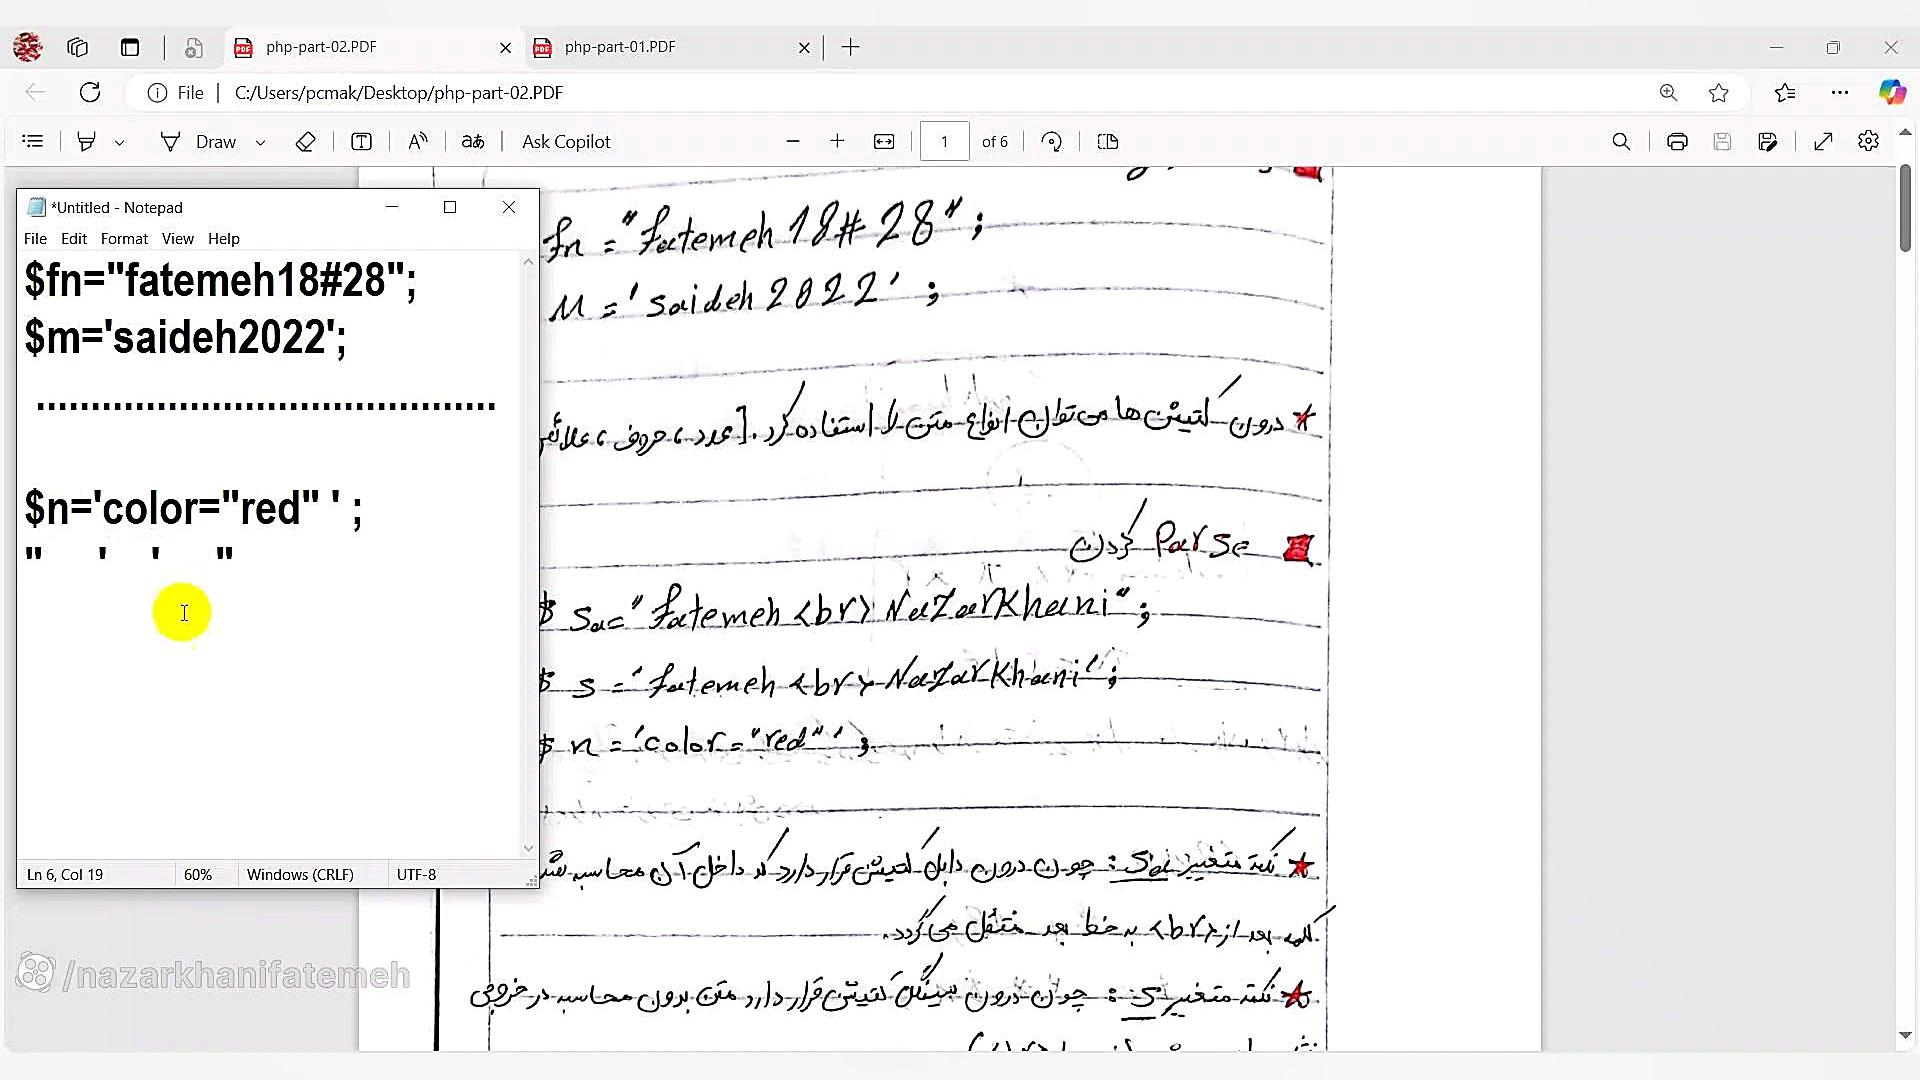 php-part-02.PDF
php-part-01.PDF
File
C:/Users/pcmak/Desktop/php-part-02.PDF
Draw
Ask Copilot
1 of 6
*Untitled - Notepad
File Edit Format View Help
$fn="fatemeh18#28";
$m='saideh2022';
..........................................
$n='color="red" ' ;
" ' ' "
Ln 6, Col 19
60%
Windows (CRLF)
UTF-8
fn = "fatemeh 18# 28" ;
M = 'saideh 2022' ;
درون کتیشن ها می توان انواع متن را استفاده کرد. [عدد، حروف، علائم
Parse کردن
$ sa= "fatemeh <br> NaZarKhani" ;
$ s = 'fatemeh <br> NaZarKhani' ;
$ n = 'color = "red" ' ;
نکته متغییر sa : چون درون دابل کتیشن قرار دارد کد داخل آن محاسبه
کلمه بعد از <br> به خط بعد منتقل می گردد.
نکته متغییر s : چون درون سینگل کتیشن قرار دارد متن بدون محاسبه در خروجی
/nazarkhanifatemeh